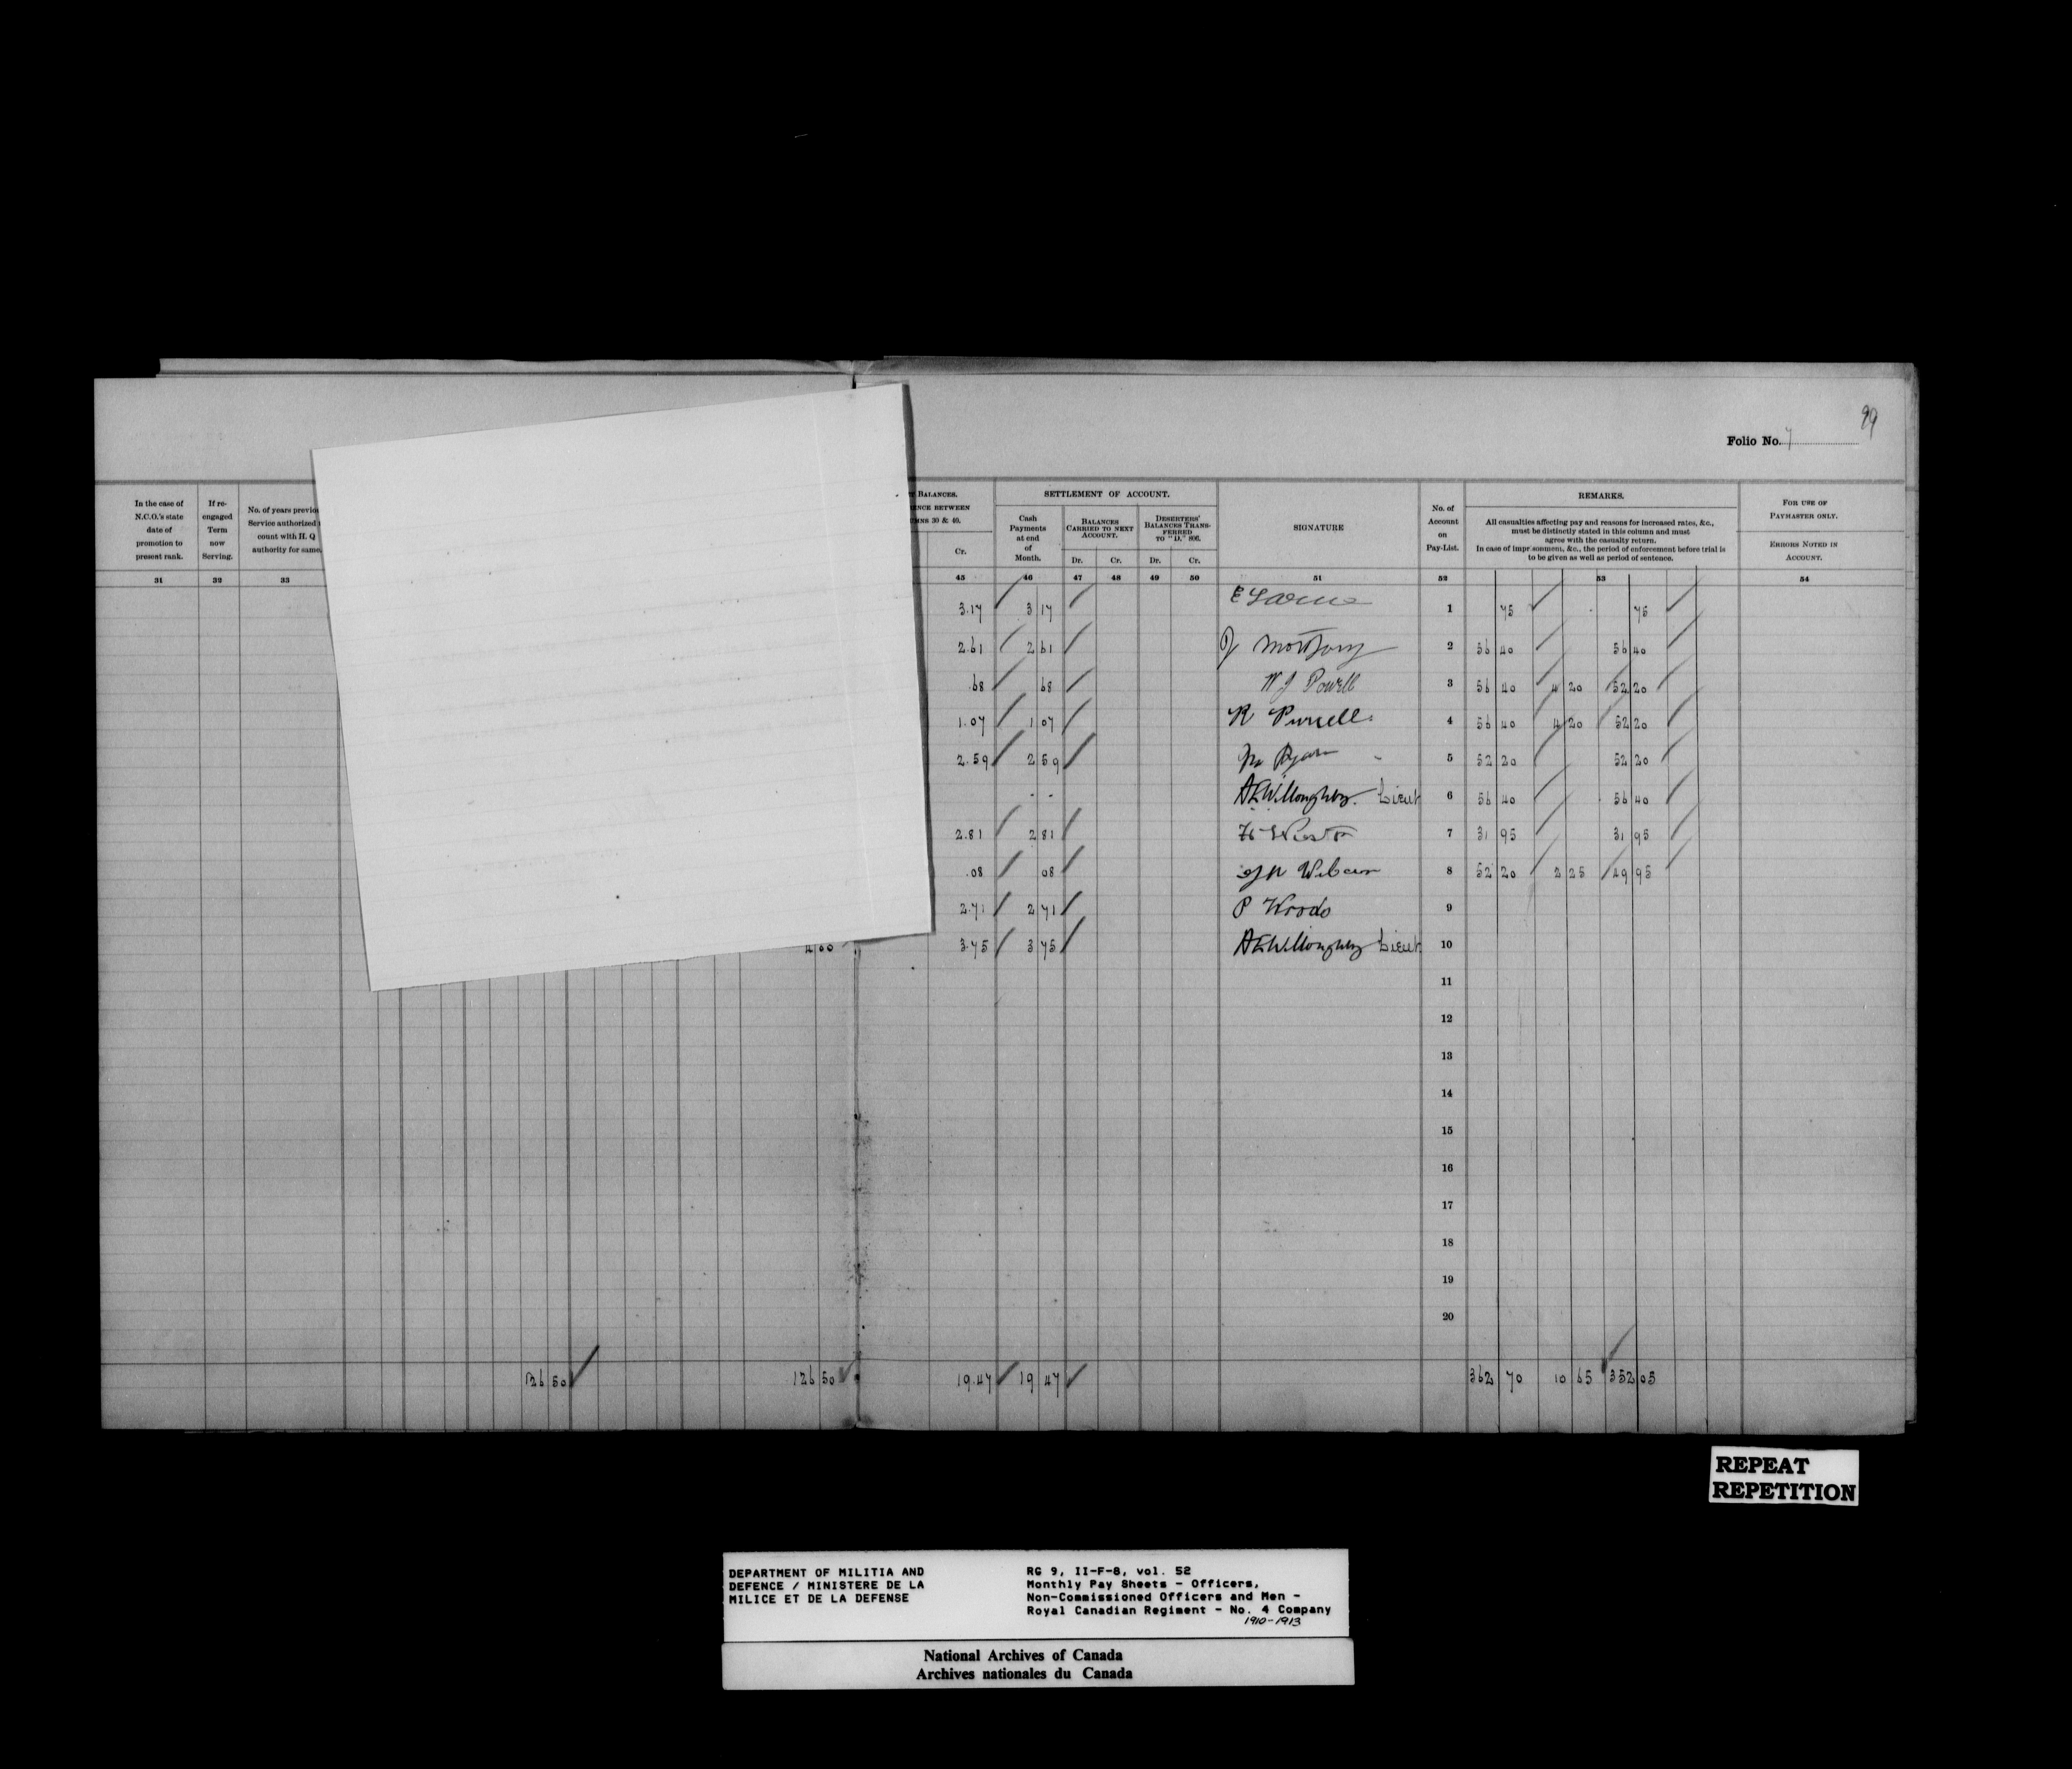 99
Folio No. 7
In the case of N.C.O.'s state date of promotion to present rank.
If re-engaged Term now Serving.
No. of years previou
Service authorized
count with H. Q
authority for same.
Balances.
ence between
mns 30 & 40.
Cr.
SETTLEMENT OF ACCOUNT.
Cash Payments at end of Month.
Balances Carried to next Account.
Dr. Cr.
Deserters' Balances Transferred to "D." 806.
Dr. Cr.
SIGNATURE
No. of Account on Pay-List.
REMARKS.
All casualties affecting pay and reasons for increased rates, &c.,
must be distinctly stated in this column and must
agree with the casualty return.
In case of impr sonment, &c., the period of enforcement before trial is
to be given as well as period of sentence.
For use of Paymaster only.
Errors Noted in Account.
31 32 33 45 46 47 48 49 50 51 52 53 54
3.17 3 17 1 75 75
2.61 2 61 2 56 40 56 40
.68 68 W J Powell 3 56 40 4 20 52 20
1.07 1 07 R Purcell 4 56 40 4 20 52 20
2.59 2 59 Ryan 5 52 20 52 20
AEWilloughby. Lieut 6 56 40 56 40
2.81 2 81 7 31 95 31 95
.08 08 8 52 20 2 25 49 95
2.71 2 71 P Woods 9
3.75 3 75 AEWilloughby Lieut 10
11
12
13
14
15
16
17
18
19
20
126 50 126 50 19.47 19 47 362 70 10 65 352 05
REPEAT
REPETITION
DEPARTMENT OF MILITIA AND
DEFENCE / MINISTERE DE LA
MILICE ET DE LA DEFENSE
RG 9, II-F-8, vol. 52
Monthly Pay Sheets - Officers,
Non-Commissioned Officers and Men -
Royal Canadian Regiment - No. 4 Company
1910-1913
National Archives of Canada
Archives nationales du Canada